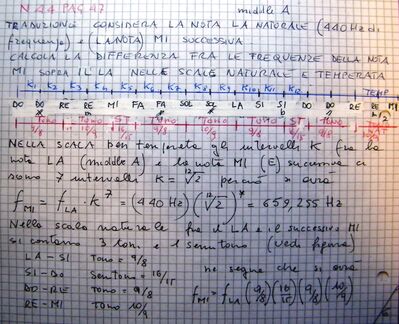 N 44 PAG 47 middle A
TRADUZIONE CONSIDERA LA NOTA LA NATURALE (440 Hz di
frequenza) e (LA NOTA) MI SUCCESSIVA
CALCOLA LA DIFFERENZA FRA LE FREQUENZE DELLA NOTA
MI SOPRA IL LA NELLE SCALE NATURALE E TEMPERATA
K1 K2 K3 K4 K5 K6 K7 K8 K9 K10 K11 K12 TEMP
DO DO# RE RE MI FA FA# SOL SOL# LA SI SI DO DO RE RE MI
TONO 9/8 TONO 10/9 ST 16/15 TONO 9/8 TONO TONO ST 15 TONO 9/8 TONO 10/9
NELLA SCALA ben temperata gli intervalli K fra la
nota LA (middle A) e la nota MI (E) successiva ci
sono 7 intervalli K = ¹²√2 perciò si avrà
f MI = f LA · K⁷ = (440 Hz) (¹²√2)⁷ = 659,255 Hz
Nella scala naturale fra il LA e il successivo MI
si contano 3 toni e 1 semitono (vedi figura)
LA - SI Tono = 9/8 ne segue che si avrà
SI - DO Semitono = 16/15
DO - RE Tono = 9/8 f MI = f LA (9/8) (16/15) (9/8) (10/9)
RE - MI Tono 10/9